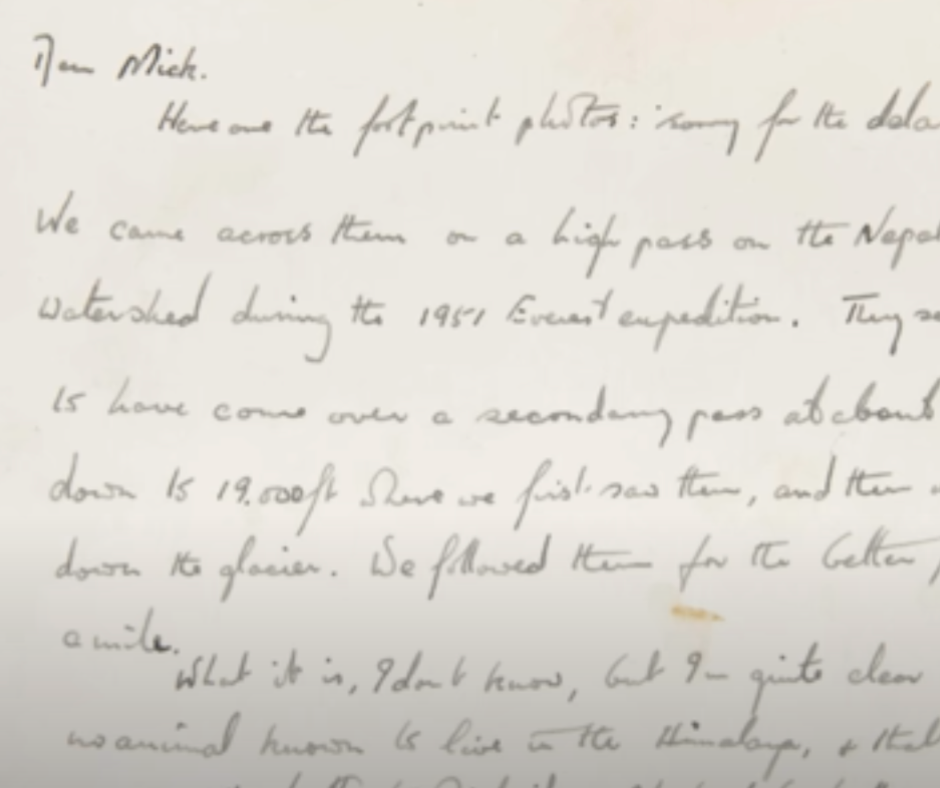 Dear Mick.
Here are the footprint photos: sorry for the dela
We came across them on a high pass on the Nepal
Watershed during the 1951 Everest expedition. They se
to have come over a secondary pass at about
down to 19.000ft where we first saw them, and then
down the glacier. We followed them for the better
a mile.
What it is, I don't know, but I'm quite clear
no animal known to live in the Himalaya, & that